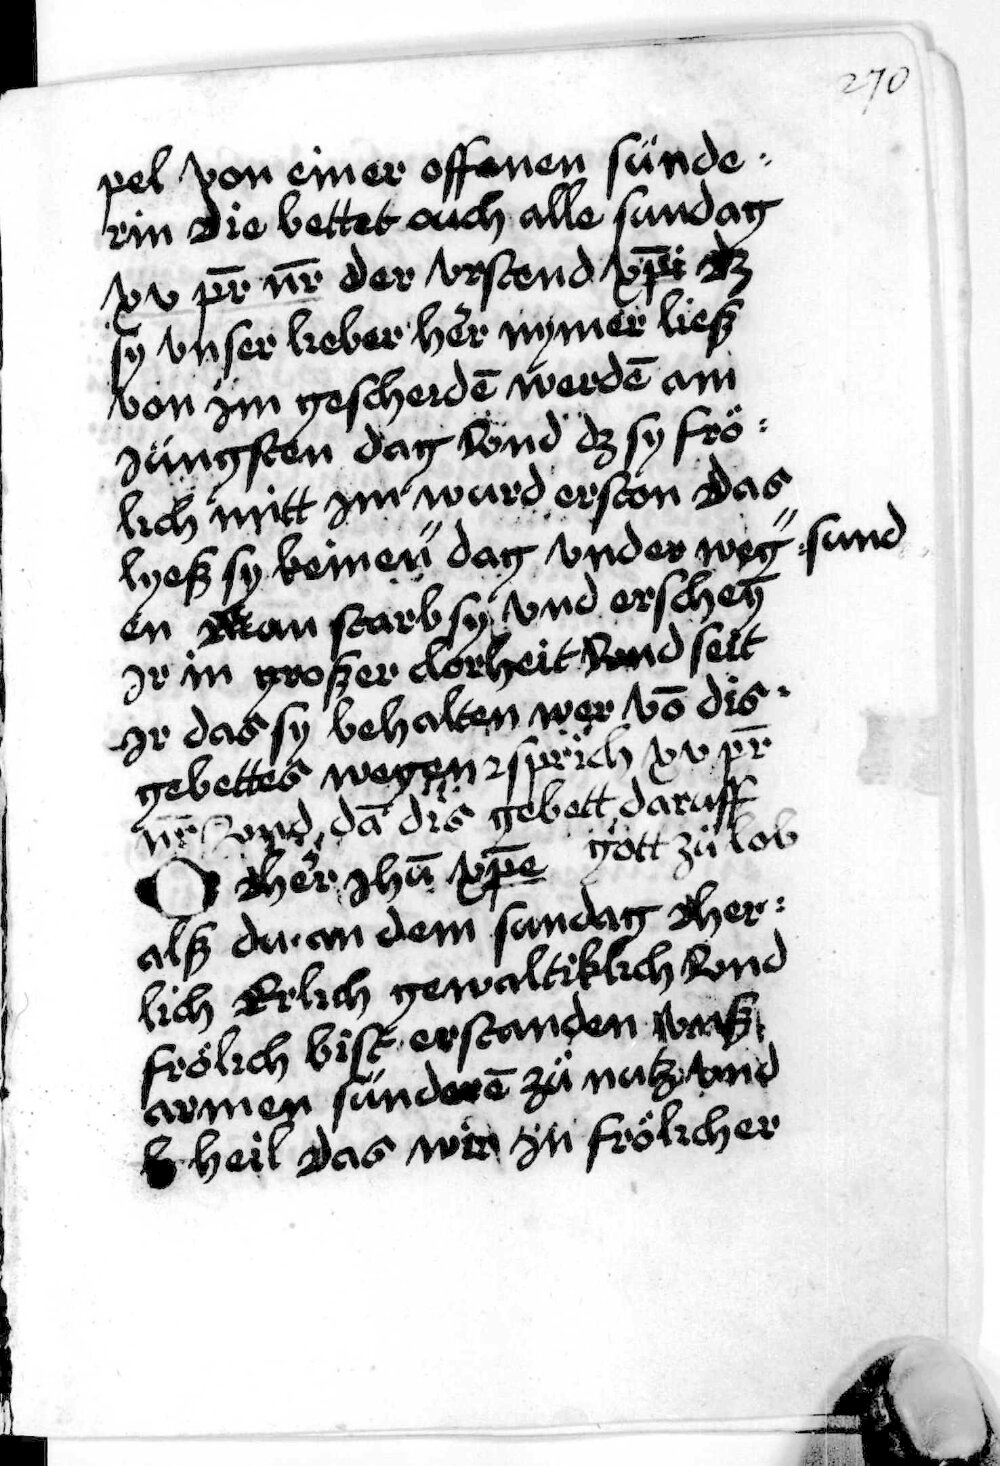 270
pel von einer offenen sünde:
rin die bettet ouch alle sundag
xv pr̄ nr̄ der vrstend xp̄i dz
sy vnser lieber her nymer ließ
von im gescheidē werdē am
Jüngsten dag vnd dz sy frö:
lich mitt im wurd erston das
lyeß sy keinen dag vnder weg :sund
en Man starb sy vnd erscheÿ
Ir in großer clorheit vnd seit
Ir das sy behalten wer vō dis
gebettes wegen sprich xv pr̄
nr̄ vnd dā dis gebett daruff
O her Jhū xp̄e gott zü lob
alß du an dem sundag her:
lich Erlich gewaltiklich vnd
frölich bist erstanden vnß
armen sünderē zü nutz vnd
heil das wir in frölicher